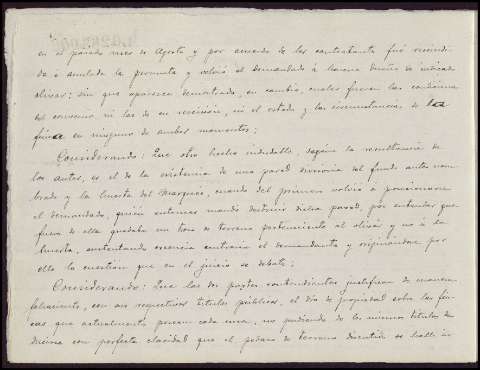 en el pasado mes de Agosto y por acuerdo de los contratantes fué rescindi-
da ó anulada la permuta y volvió el demandado á hacerse dueño de
olivar; sin que aparezca demostrado, en cambio, cuales fueran las condiciones
del convenio ni las de su rescisión, ni el estado y las circunstancias de la
finca en ninguno de ambos momentos;
Considerando: Que otro hecho indudable, según la resultancia de
los autos, es el de la existencia de una pared divisoria del fundo antes nom-
brado y la huerta del Marqués, cuando del primero volvió á posesionarse
el demandado, quien entonces mandó destruir dicha pared, por entender que
fuera de ella quedaba un trozo de terreno perteneciente al olivar y no á la
huerta, sustentando creencia contraria el demandante y originándose por
ello la cuestión que en el juicio se debate;
Considerando: Que las dos partes contendientes justifican de manera
, con sus respectivos títulos públicos, el dro de propiedad sobre las fin-
cas que actualmente poseen cada una, no pudiendo de los mismos títulos de-
ducirse con perfecta claridad que el pedazo de terreno discutido se halle in-